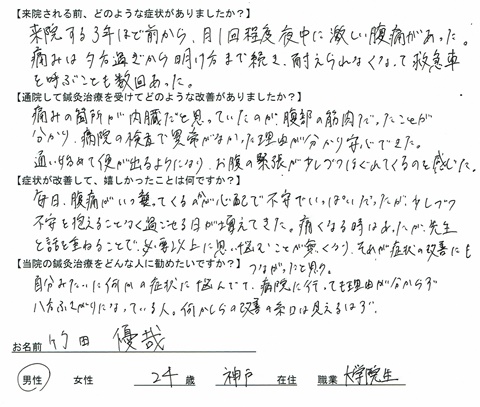 【来院される前、どのような症状がありましたか？】
来院する3年ほど前から、月1回程度夜中に激しい腹痛があった。
痛みは夕方過ぎから明け方まで続き、耐えられなくなって救急車
を呼ぶことも数回あった。
【通院して鍼灸治療を受けてどのような改善がありましたか？】
痛みの箇所が内臓だと思っていたのが、腹部の筋肉だったことが
分かり、病院の検査で異常がなかった理由が分かり安心できた。
通い始めて便が出るようになり、お腹の緊張が少しづつほぐれてくるのを感じた。
【症状が改善して、嬉しかったことは何ですか？】
毎日、腹痛がいつ襲ってくるのか心配で不安でいっぱいだったが、少しづつ
不安を抱えることなく過ごせる日が増えてきた。痛くなる時はあったが、先生
と話を重ねることで、必要以上に思い悩むことが無くなり、それが症状の改善にも
つながったと思う。
【当院の鍼灸治療をどんな人に勧めたいですか？】
自分みたいに何かの症状に悩んでいて、病院に行っても理由が分からず
八方ふさがりになっている人。何かしらの改善の糸口は見えるはず。
お名前 竹田 優哉
男性 女性 24 歳 神戸 在住 職業 大学院生